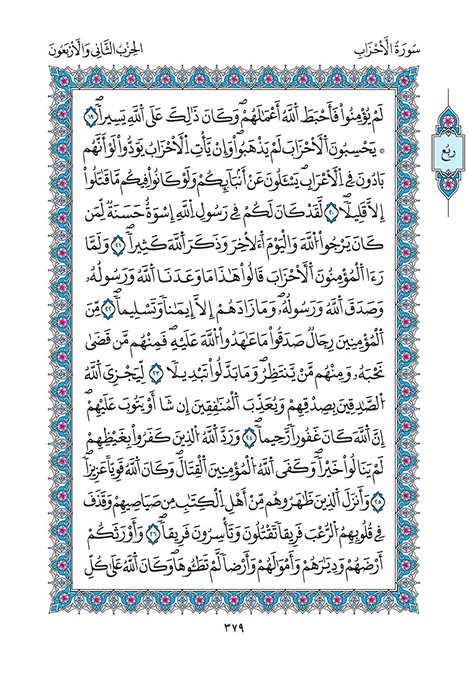 سُورَةُ الْأَحْزَابِ
الحِزْبُ الثَّانِي وَالْأَرْبَعُونَ
لَمْ يُومِنُواْ فَأَحْبَطَ اَللَّهُ أَعْمَٰلَهُمْ وَكَانَ ذَٰلِكَ عَلَى اَللَّهِ يَسِيراٗ ١٩
۞ يَحْسِبُونَ اَلْأَحْزَابَ لَمْ يَذْهَبُواْ وَإِنْ يَّأْتِ اِلْأَحْزَابُ يَوَدُّواْ لَوْ أَنَّهُم
بَادُونَ فِي اِلْأَعْرَابِ يَسْـَٔلُونَ عَنْ أَنۢبَآئِكُمْ وَلَوْ كَانُواْ فِيكُم مَّا قَٰتَلُواْ
إِلَّا قَلِيلاٗ ٢٠ لَّقَدْ كَانَ لَكُمْ فِي رَسُولِ اِللَّهِ إِسْوَةٌ حَسَنَةٞ لِّمَن
كَانَ يَرْجُواْ اُللَّهَ وَالْيَوْمَ اَلْأٓخِرَ وَذَكَرَ اَللَّهَ كَثِيراٗ ٢١ وَلَمَّا
رَءَا اَلْمُؤْمِنُونَ اَلْأَحْزَابَ قَالُواْ هَٰذَا مَا وَعَدَنَا اَللَّهُ وَرَسُولُهُۥ
وَصَدَقَ اَللَّهُ وَرَسُولُهُۥ وَمَا زَادَهُمْ إِلَّا إِيمَٰناٗ وَتَسْلِيماٗ ٢٢ مِّنَ
اَلْمُؤْمِنِينَ رِجَالٞ صَدَقُواْ مَا عَٰهَدُواْ اُللَّهَ عَلَيْهِ فَمِنْهُم مَّن قَضَىٰ
نَحْبَهُۥ وَمِنْهُم مَّنْ يَّنتَظِرُ وَمَا بَدَّلُواْ تَبْدِيلاٗ ٢٣ لِّيَجْزِيَ اَللَّهُ
اُلصَّٰدِقِينَ بِصِدْقِهِمْ وَيُعَذِّبَ اَلْمُنَٰفِقِينَ إِن شَآ أَوْ يَتُوبَ عَلَيْهِمْ
إِنَّ اَللَّهَ كَانَ غَفُوراٗ رَّحِيماٗ ٢٤ وَرَدَّ اَللَّهُ اُلذِينَ كَفَرُواْ بِغَيْظِهِمْ
لَمْ يَنَالُواْ خَيْراٗ وَكَفَى اَللَّهُ اُلْمُؤْمِنِينَ اَلْقِتَالَ وَكَانَ اَللَّهُ قَوِيّاً عَزِيزاٗ
٢٥ وَأَنزَلَ اَلذِينَ ظَٰهَرُوهُم مِّنْ أَهْلِ اِلْكِتَٰبِ مِن صَيَاصِيهِمْ وَقَذَفَ
فِي قُلُوبِهِمُ اُلرُّعْبَ فَرِيقاٗ تَقْتُلُونَ وَتَأْسِرُونَ فَرِيقاٗ ٢٦ وَأَوْرَثَكُمْ
أَرْضَهُمْ وَدِيَٰرَهُمْ وَأَمْوَٰلَهُمْ وَأَرْضاٗ لَّمْ تَطَـُٔوهَا وَكَانَ اَللَّهُ عَلَىٰ كُلِّ
ربع
٣٧٩